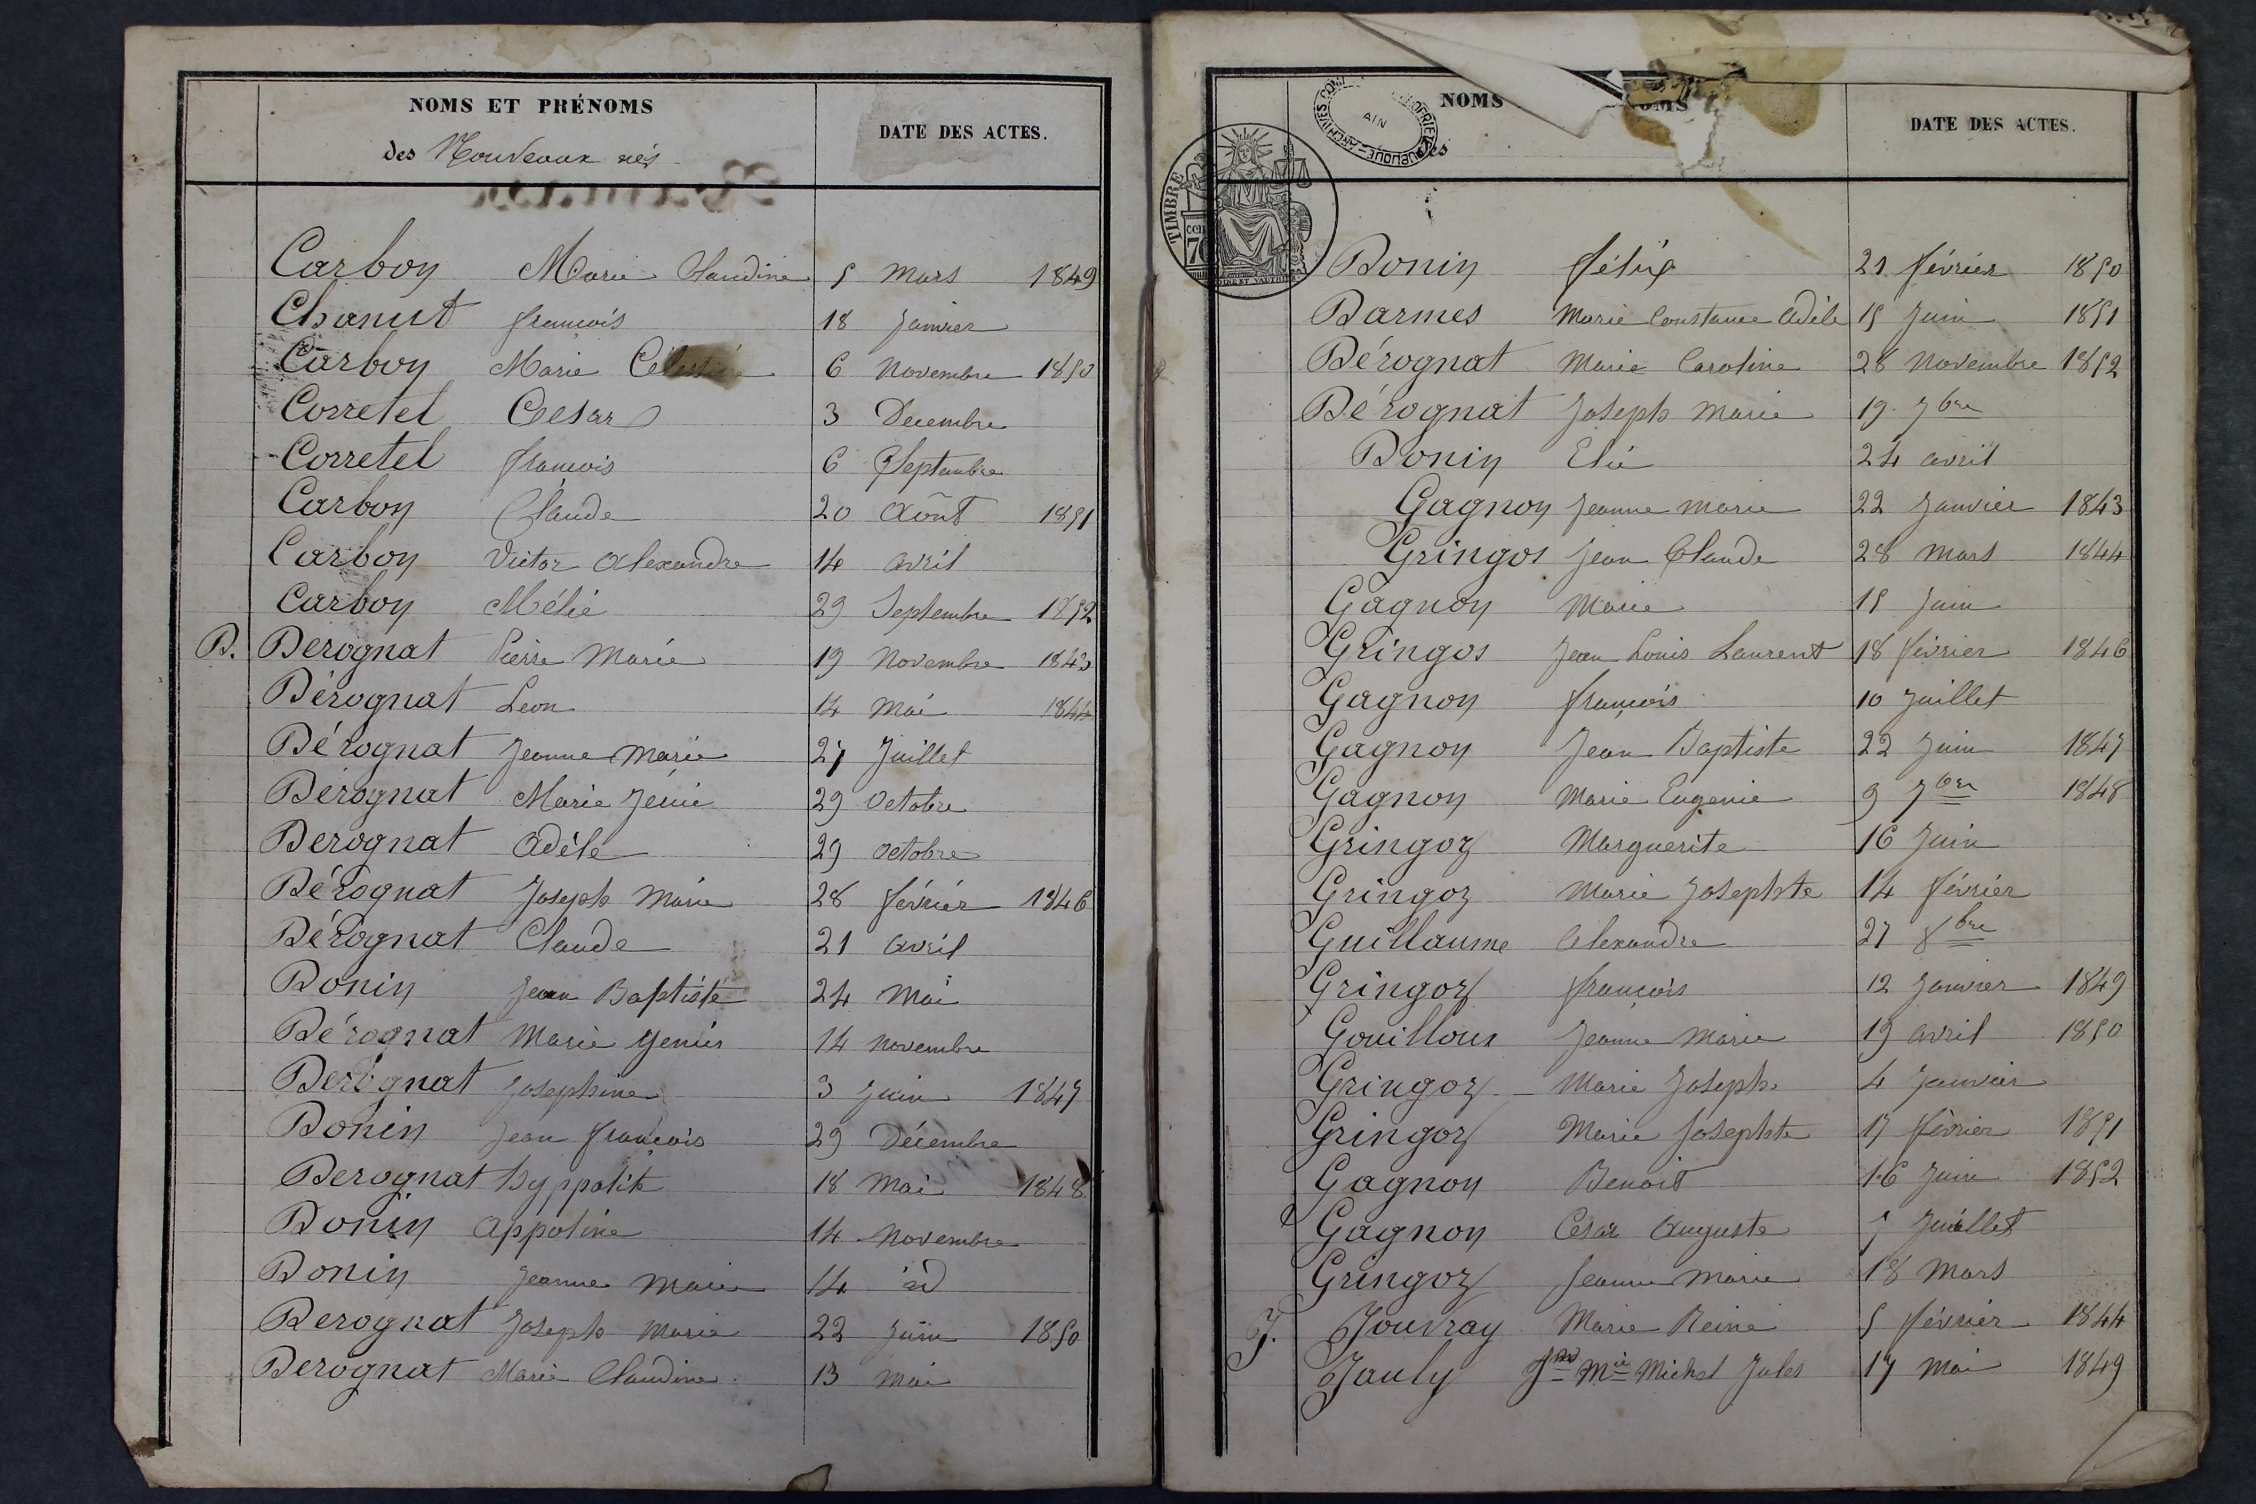 NOMS ET PRÉNOMS
des Nouveaux nés
DATE DES ACTES.
Carbon Marie Claudine 5 Mars 1849
Chanut françois 18 Janvier
Carbon Marie 6 Novembre 1850
Corretel Cesar 3 Decembre
Corretel françois 6 Septembre
Carbon Claude 20 Aôut 1851
Carbon Victor Alexandre 14 avril
Carbon Mélie 29 Septembre 1852
D. Derognat Pierre Marie 19 Novembre 1843
Dérognat Leon 14 Mai 1844
Dérognat Jeanne Marie 27 Juillet
Dérognat Marie Jenie 29 Octobre
Derognat Adèle 29 octobre
Dérognat Joseph Marie 28 février 1846
Dérognat Claude 21 avril
Donin Jean Baptiste 24 Mai
Dérognat Marie Genies 14 Novembre
Derognat Josephine 3 Juin 1847
Donin Jean françois 29 Décembre
Derognat hyppolite 18 Mai 1848
Donin Appoline 14 Novembre
Donin Jeanne Marie 14 id
Derognat Joseph Marie 22 Juin 1850
Derognat Marie Claudine 13 Mai
NOMS OMS
DATE DES ACTES.
AIN
TIMBRE
Donin félix 21 février 1850
Darmes Marie Constance Adèle 15 Juin 1851
Dérognat Marie Caroline 28 Novembre 1852
Dérognat Joseph Marie 19 7bre
Donin Elie 24 avril
Gagnon Jeanne Marie 22 Janvier 1843
Gringos Jean Claude 28 Mars 1844
Gagnon Marie 15 Juin
Gringos Jean Louis Laurent 18 février 1846
Gagnon françois 10 Juillet
Gagnon Jean Baptiste 22 Juin 1847
Gagnon Marie Eugenie 9 7bre 1848
Gringoz Marguerite 16 Juin
Gringoz Marie Josephte 14 février
Guillaume Alexandre 27 8bre
Gringoz françois 12 Janvier 1849
Gouilloux Jeanne Marie 19 avril 1850
Gringoz Marie Joseph 4 Janvier
Gringoz Marie Josephte 17 février 1851
Gagnon Benoit 16 Juin 1852
Gagnon Cesar Auguste 5 Juillet
Gringoz Jeanne Marie 18 Mars
J. Jouvray Marie Reine 5 février 1844
Jauly Mie Michel Jules 17 Mai 1849